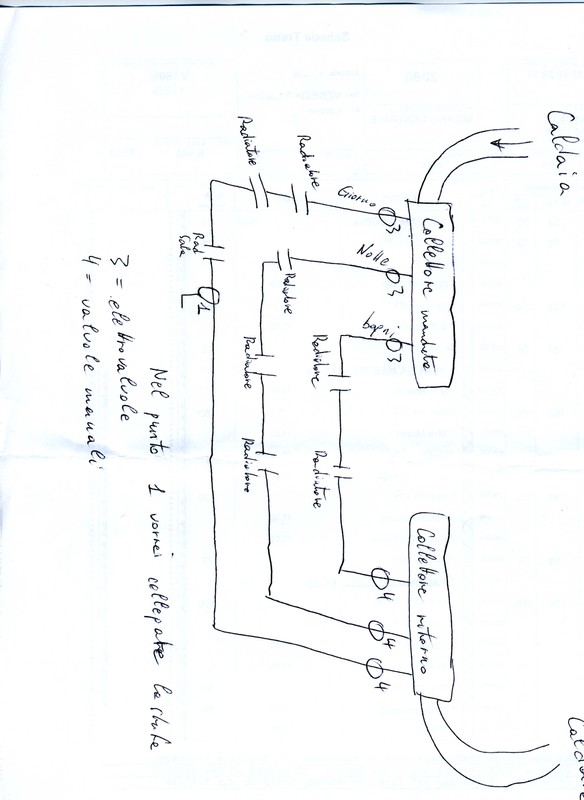 Caldaia
Caldaia
Collettore mandata
Collettore ritorno
3
3
3
4
4
4
Giorno
Notte
bagni
Radiatore
Radiatore
Radiatore
Radiatore
Radiatore
Radiatore
Radiatore
Radiatore
Rad
Sala
1
Nel punto 1 vorrei collegare la stufa
3 = elettrovalvole
4 = valvole manuali